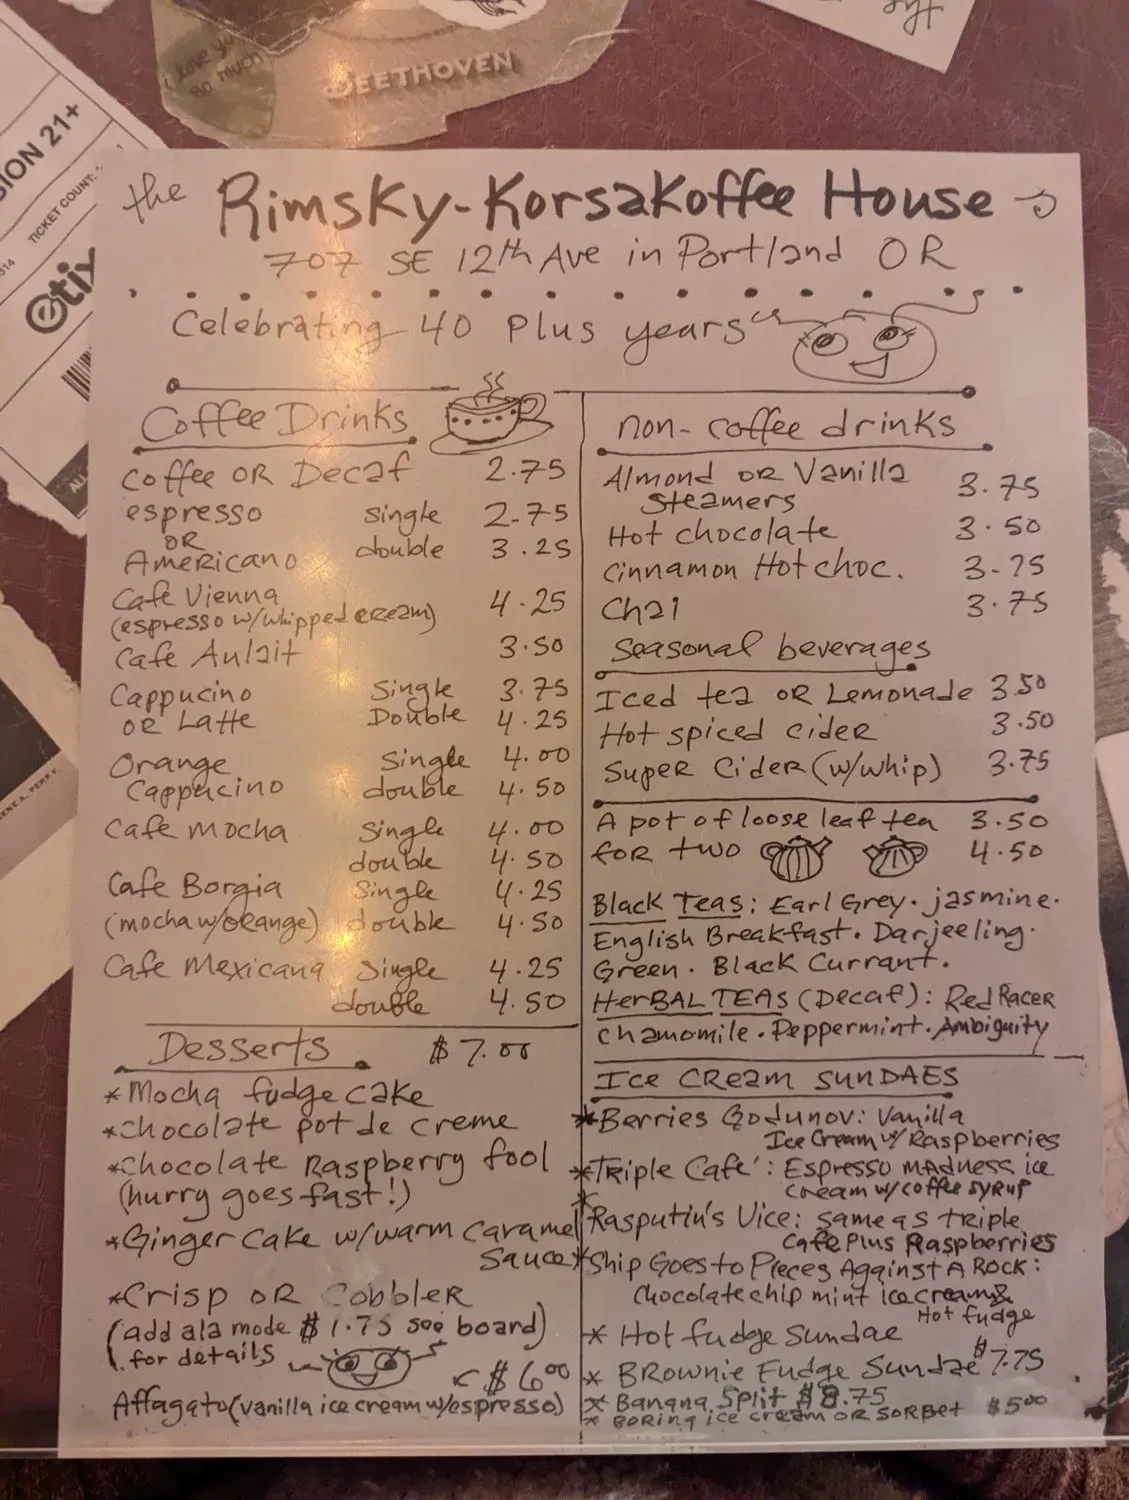 i love you
so much
BEETHOVEN
SION 21+
TICKET COUNT:
etix
ALL
ENT A. PERRY.
the Rimsky-Korsakoffee House
707 SE 12th Ave in Portland OR
Celebrating 40 Plus years
Coffee Drinks
Coffee OR Decaf 2.75
espresso single 2.75
OR
Americano double 3.25
Café Vienna 4.25
(espresso w/whipped cream)
Cafe Aulait 3.50
Cappucino Single 3.75
OR Latte Double 4.25
Orange Single 4.00
Cappucino double 4.50
Cafe Mocha Single 4.00
double 4.50
Cafe Borgia Single 4.25
(mocha w/orange) double 4.50
Cafe Mexicana Single 4.25
double 4.50
Desserts $7.00
*Mocha fudge cake
*Chocolate pot de creme
*Chocolate Raspberry fool
(hurry goes fast!)
*Ginger Cake w/warm Caramel
Sauce
*Crisp OR Cobbler
(add ala mode $1.75 see board)
for details
$6.00
Affagato (vanilla ice cream w/espresso)
non-coffee drinks
Almond OR Vanilla 3.75
Steamers
Hot chocolate 3.50
Cinnamon Hot choc. 3.75
Chai 3.75
Seasonal beverages
Iced tea OR Lemonade 3.50
Hot spiced cider 3.50
Super Cider (w/whip) 3.75
A pot of loose leaf tea 3.50
for two 4.50
Black Teas: Earl Grey. jasmine.
English Breakfast. Darjeeling.
Green. Black Currant.
HerBAL TEAS (Decaf): Red Racer
Chamomile. Peppermint. Ambiguity
Ice Cream SUNDAES
*Berries Godunov: Vanilla
Ice Cream w/ Raspberries
*Triple Cafe': Espresso MADNess ice
cream w/coffee syrup
*Rasputin's Vice: same as triple
Cafe Plus Raspberries
*Ship Goes to Pieces Against A Rock:
Chocolate chip mint ice cream &
Hot fudge
* Hot fudge Sundae
* Brownie Fudge Sundae $7.75
* Banana Split $8.75
* BORing ice cream OR SORBet $5.00